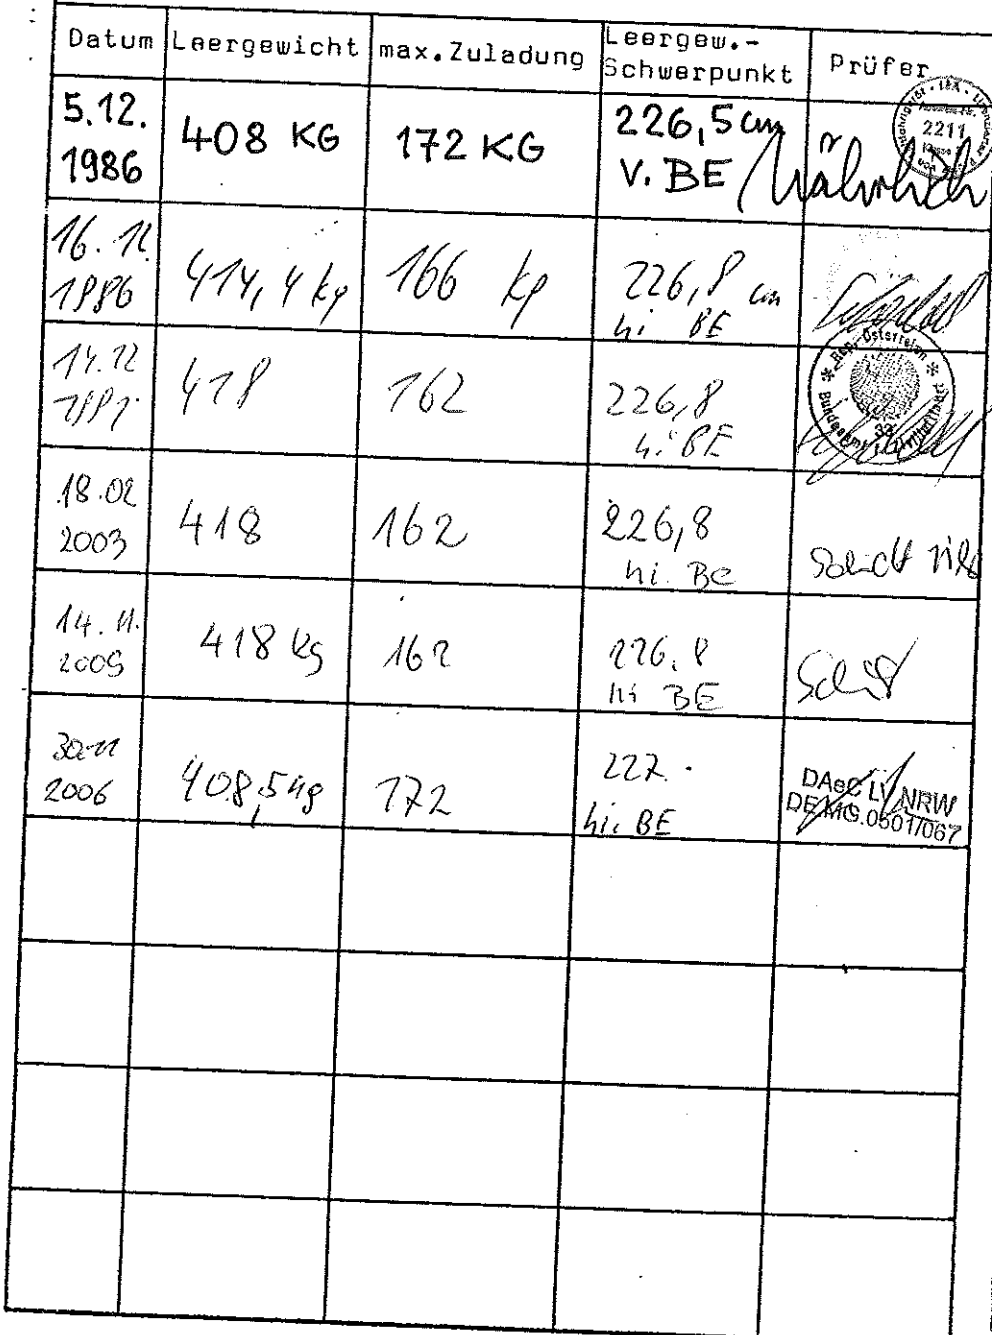 Datum Leergewicht max.Zuladung Leergew.-
Schwerpunkt Prüfer
5.12.
1986 408 KG 172 KG 226,5 cm
V. BE
2211
16. 12.
1986 414,4 kg 166 kp 226,8 cm
hi BE
418 162 226,8
hi BE
Rep. Österreich
18.02
2003 418 162 226,8
hi. BE
14. 11.
2005 418 kg 162 226.8
hi BE
30.11
2006 408,5 kg 172 227.
hi. BE
DAeC LV NRW
DE.MG.0501/067